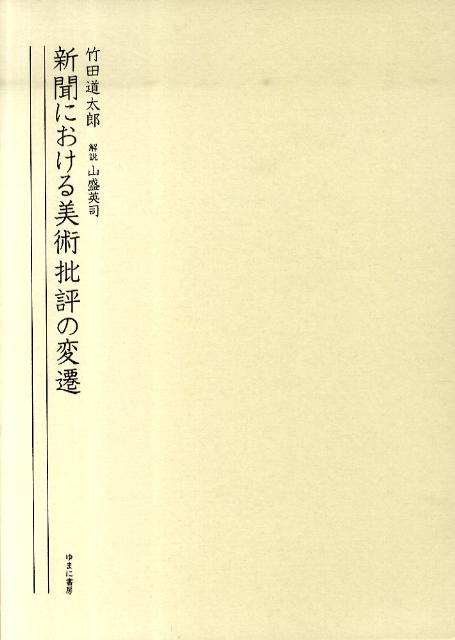 竹田道太郎 解説 山盛英司
新聞における美術批評の変遷
ゆまに書房